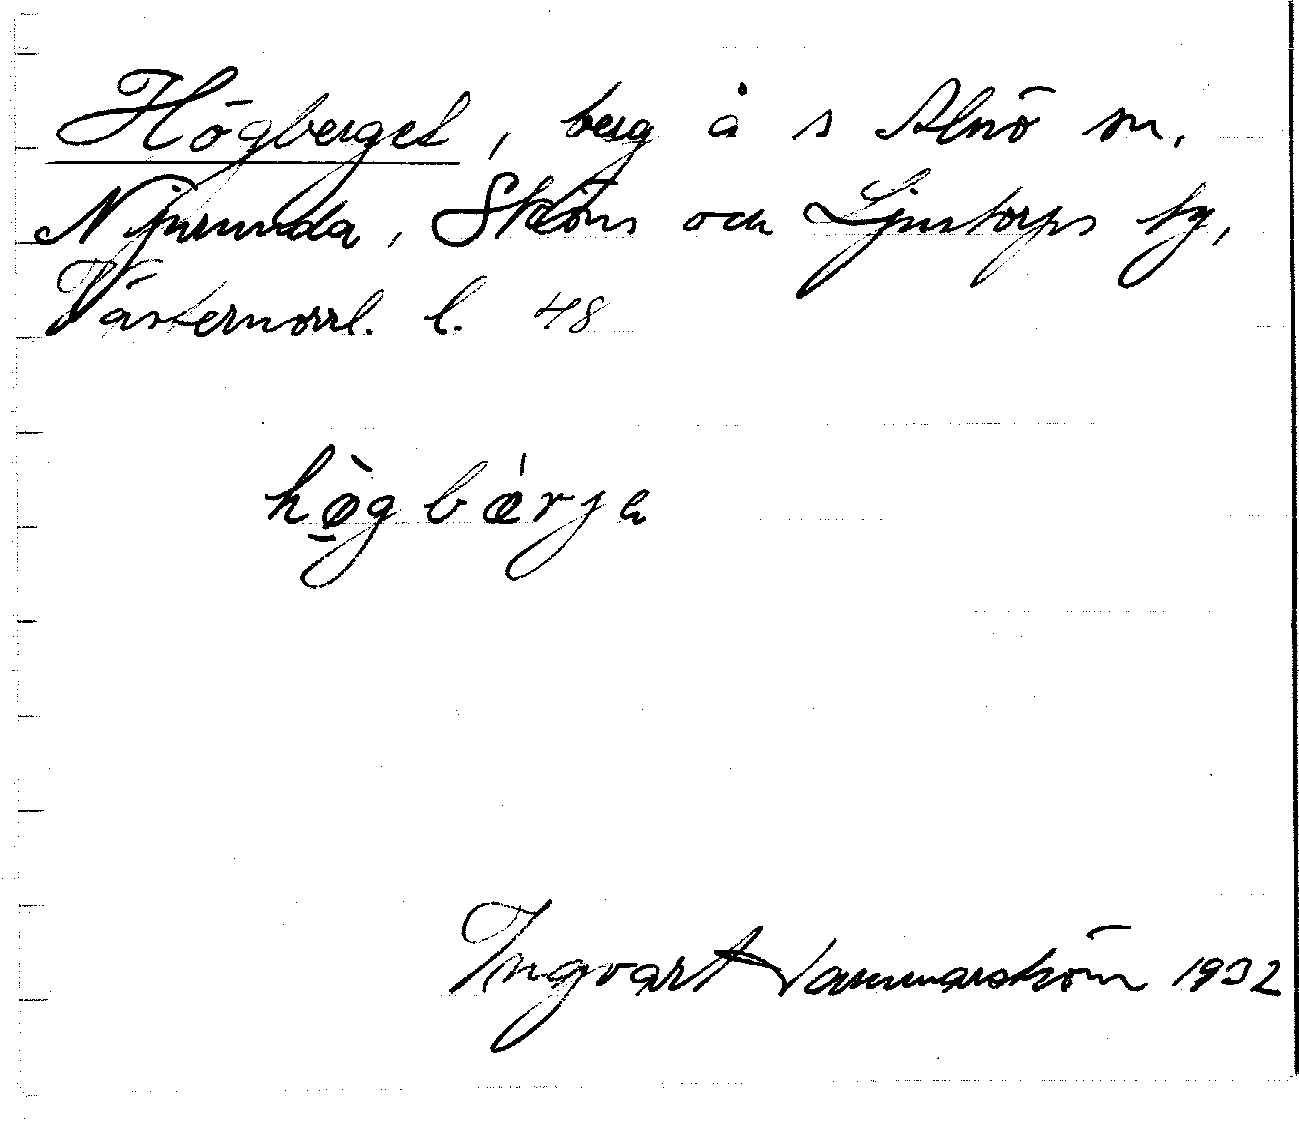 Högberget, berg å s Alnö sn.
Njurunda, Sköns och Ljustorps tg,
Västernorrl. l. 48
hø̠̀gbǽrja
Ingvart Hammarström 1932